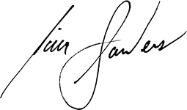 Jim Sanders